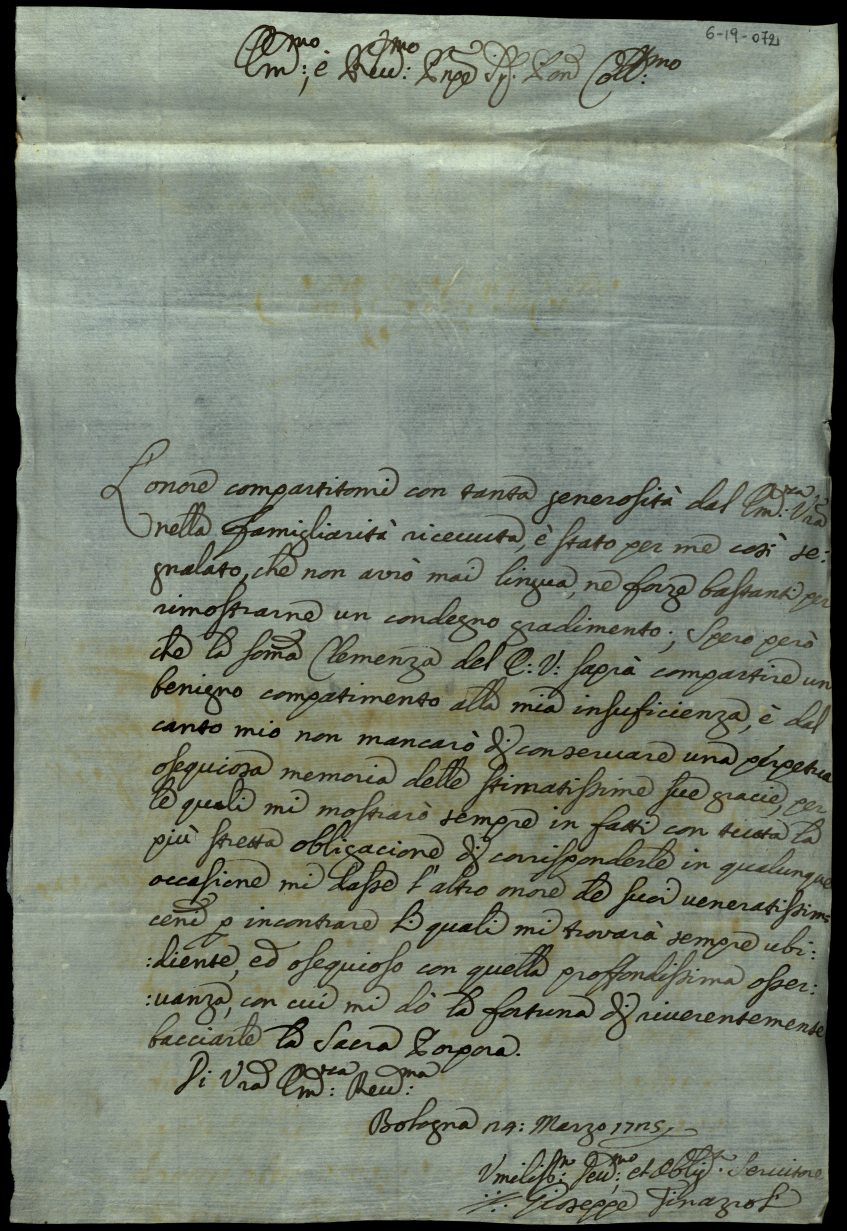 6-19-072
Em:mo, è Reu:mo Prpe Sig. Pad Coll:mo
L'onore compartitomi con tanta generosità dal Em:za Vra
nella famigliarità riceuuta, è stato per me così se:
gnalato, che non avrò mai lingua, ne forze bastanti per
rimostrarne un condegno gradimento; Spero però
che la soma Clemenza del E: V: saprà compartire un
benigno compatimento alla mia insuficienza, è dal
canto mio non mancarò di conseruare una perpetua
osequiosa memoria delle stimatissime sue gracie, per
le quali mi mostrarò sempre in fatti con tutta la
più stretta obligacione di corrisponderle in qualunque
occasione mi dasse l'altro onore de suoi ueneratissimi
ceni p incontrare li quali mi trovarà sempre ubi:
:diente, ed osequioso con quella proffondissima osser:
:uanza, con cui mi dò la fortuna di riuerentemente
bacciarle la Sacra Porpora.
Di Vra Em:za Reu:ma
Bologna 24: Marzo 1725
Vmiliss:mo Deu:mo et Oblig:mo Seruitore
Gioseppe Finazoli